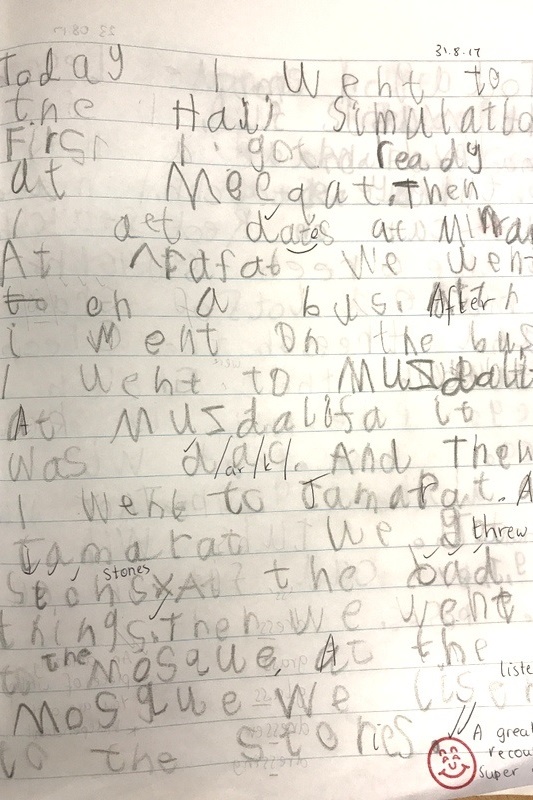 31.8.17
Today I went to
the Hajj Simulatio
First I got ready
at Meeqat. Then
I get dates at Minnan
At Arafat We went
to on a bus. After
i went on the bus
I went to MUSdalif
At Muzdalifa it
was dark. And Then
I went to Jamarat. A
Jamarat we threw
stones
Stonsx At the bad
things. Then we went
to the Mosque. At the
liste
Mosque We lisen
to the Stories
A great
recou
super